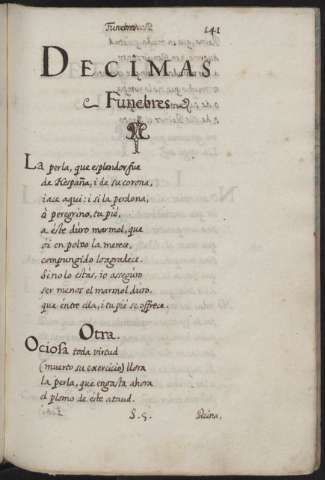 Funebres. 141
DECIMAS
Funebres
La perla, que esplendor fue
de España, i de su corona,
iace aqui: i si la perdona,
ô peregrino, tu piè,
a éste duro marmol, que
si en polvo la merece,
compungido lo agradece.
Si no lo estàs, io asseguro
ser menos el marmol duro,
que éntre ella, i tu piè se offrece.
Otra.
Ociosa toda virtud
(muerto su exercicio) llora
la perla, que engasta ahora
el plomo de éste ataud.
S. 5. Reina,